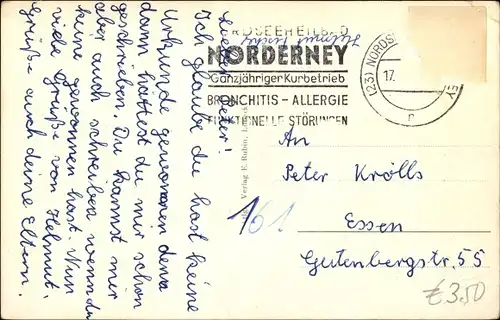 Lieber Peter!
Ich glaube du hast keine
Urkunde gewonnen denn
dann hättest du mir schon
geschrieben. Du kannst mir
aber auch schreiben wenn du
keine gewonnen hast. Nun
viele Grüße von Helmut.
Grüße auch deine Eltern.
NORDSEEHEILBAD
NORDERNEY
Ganzjähriger Kurbetrieb
BRONCHITIS – ALLERGIE
FUNKTIONELLE STÖRUNGEN
(23) NORDS
17.
n
Verlag E. Rubin,
An
Peter Krölls
161
Essen
Gutenbergstr. 55
€ 3.50